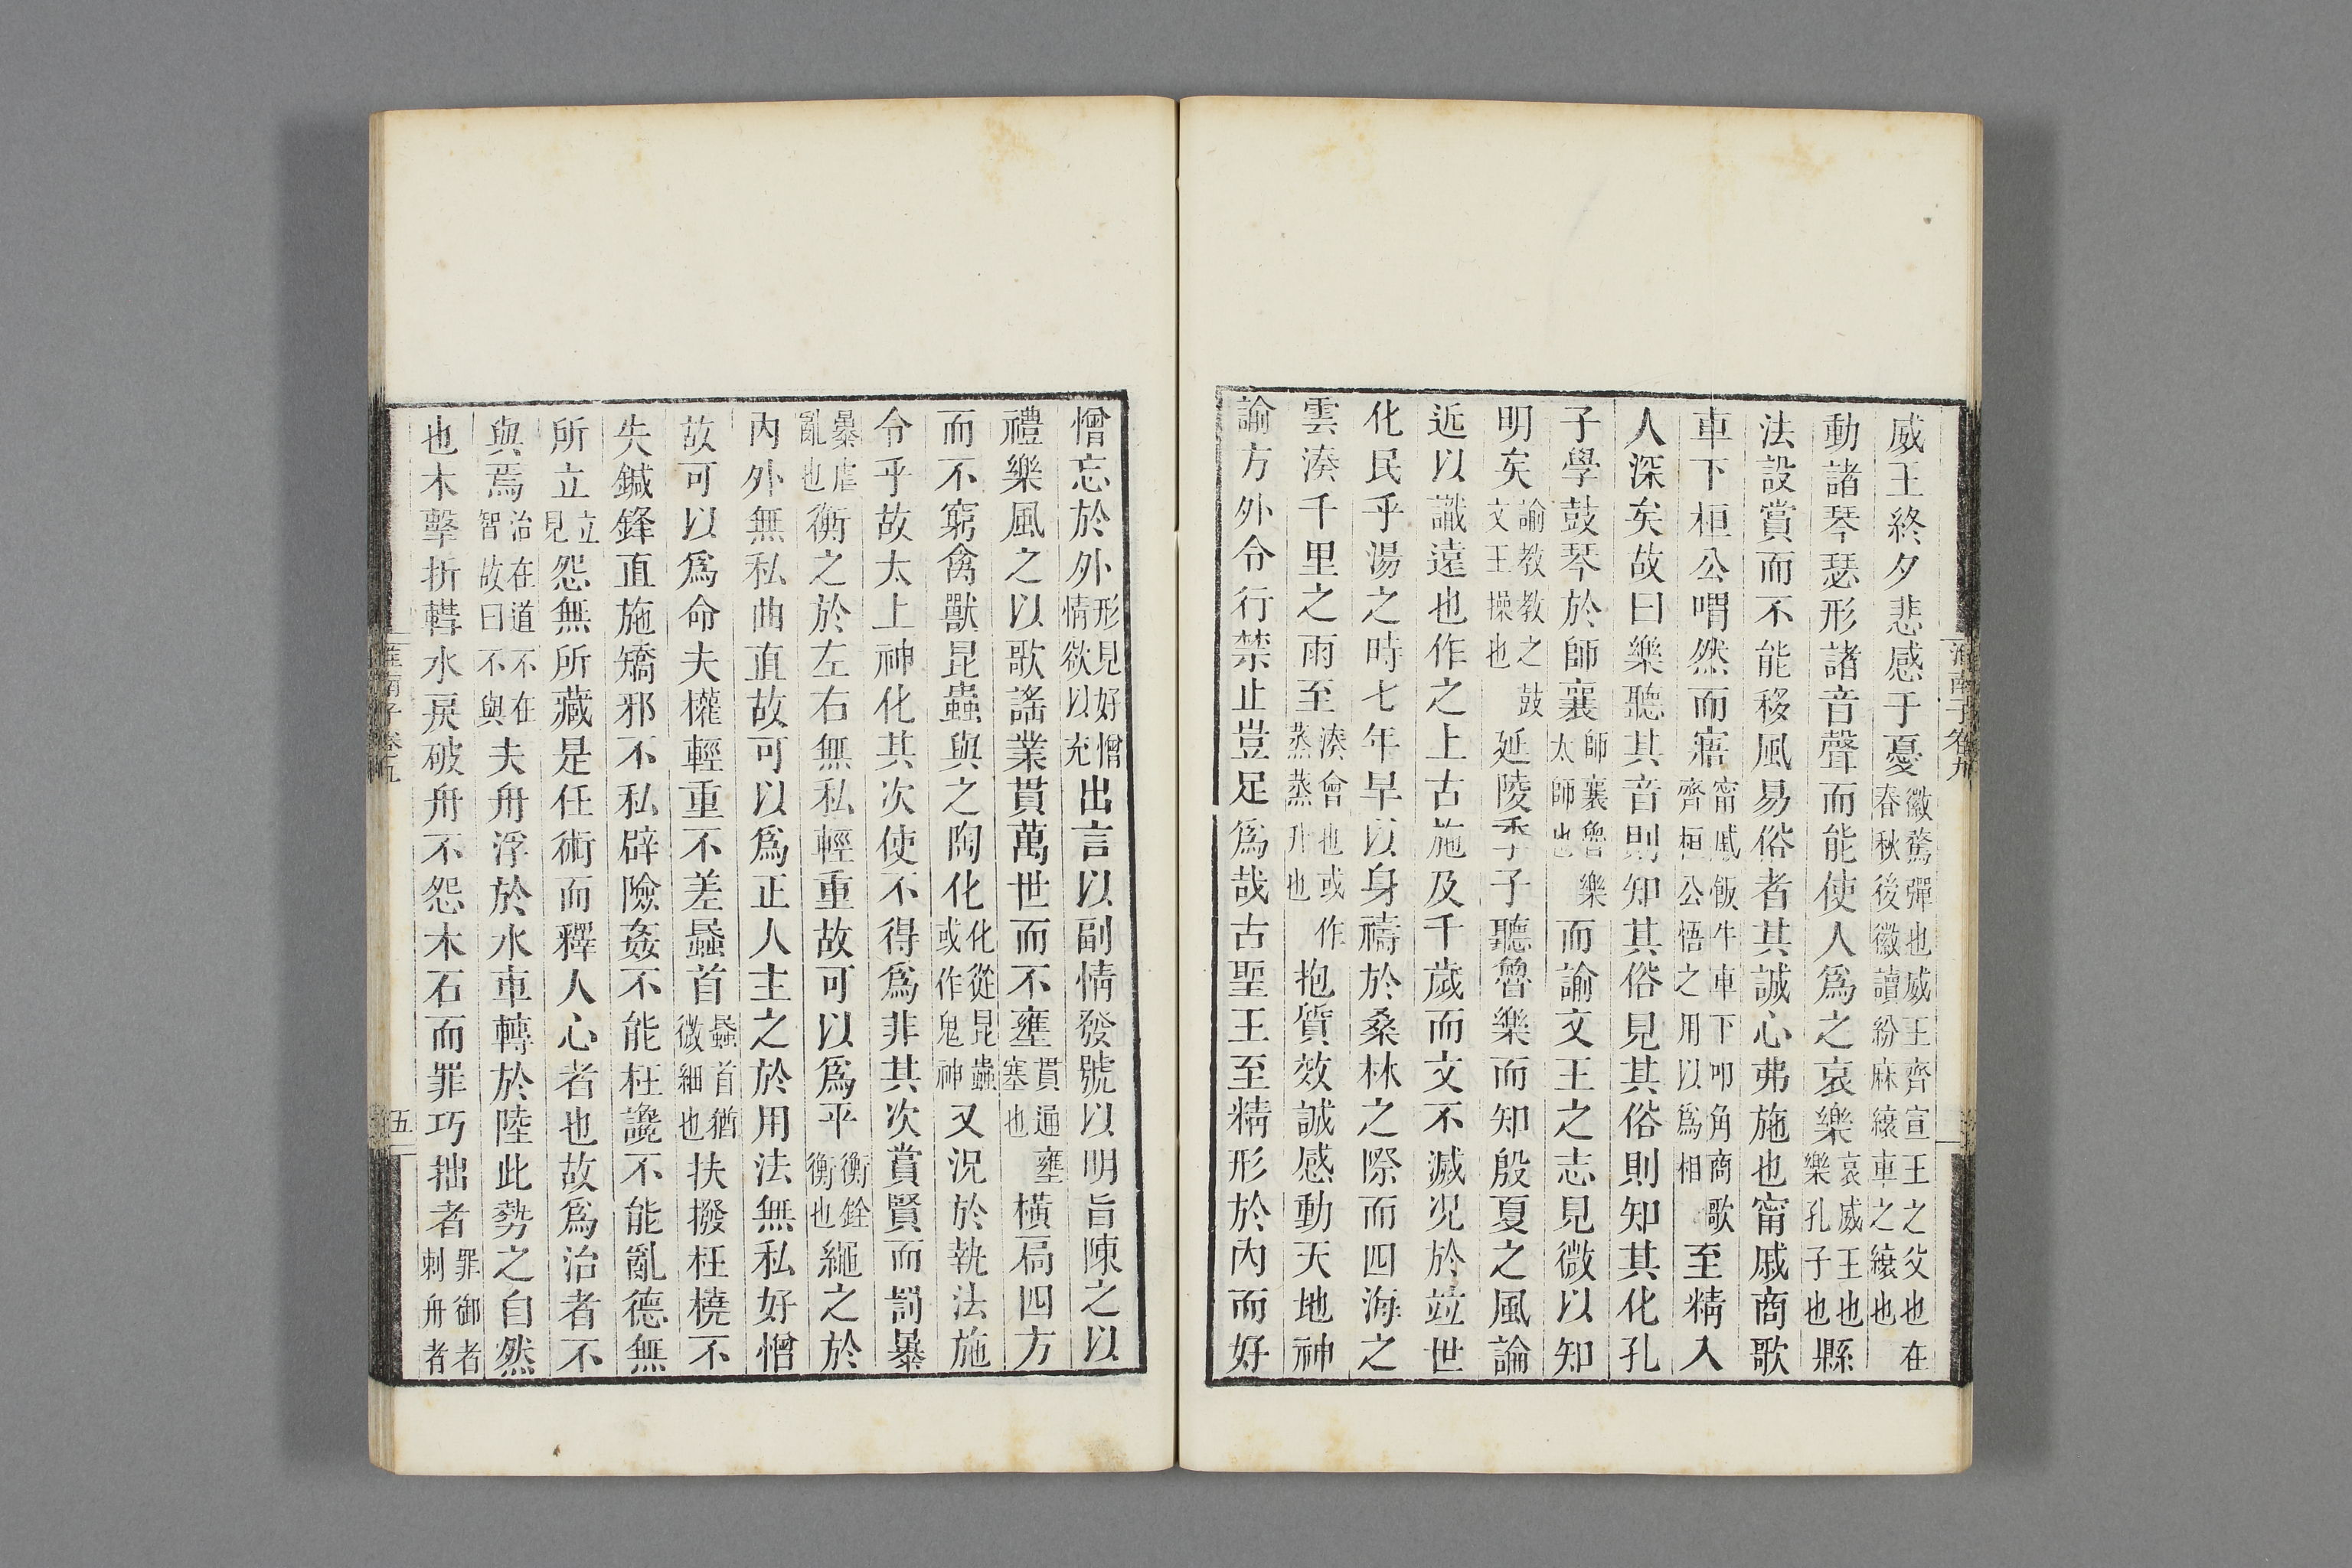 威王終夕悲感于憂徽騖彈也威王齊宣王之父也在春秋後徽讀紛麻縗車之縗也
動諸琴瑟形諸音聲而能使人爲之哀樂哀威王也樂孔子也縣
法設賞而不能移風易俗者其誠心弗施也甯戚商歌
車下桓公喟然而寤甯戚飯牛車下叩角商歌齊桓公悟之用以爲相至精入
人深矣故曰樂聽其音則知其俗見其俗則知其化孔
子學鼓琴於師襄師襄魯樂太師也而諭文王之志見微以知
明矣諭教教之鼓文王操也延陵季子聽魯樂而知殷夏之風論
近以識遠也作之上古施及千歲而文不滅況於竝世
化民乎湯之時七年旱以身禱於桑林之際而四海之
雲湊千里之雨至湊會也或作蒸蒸升也抱質效誠感動天地神
諭方外令行禁止豈足爲哉古聖王至精形於內而好
憎忘於外形見好憎情欲以充出言以副情發號以明旨陳之以
禮樂風之以歌謠業貫萬世而不壅貫通壅塞也橫扃四方
而不窮禽獸昆蟲與之陶化化從昆蟲或作鬼神又況於執法施
令乎故太上神化其次使不得爲非其次賞賢而罰暴
暴虐亂也衡之於左右無私輕重故可以爲平衡銓衡也繩之於
內外無私曲直故可以爲正人主之於用法無私好憎
故可以爲命夫權輕重不差蟁首蟁首猶微細也扶撥枉橈不
失鍼鋒直施矯邪不私辟險姦不能枉讒不能亂德無
所立立見怨無所藏是任術而釋人心者也故爲治者不
與焉治在道不在智故曰不與夫舟浮於水車轉於陸此勢之自然
也木擊折轊水戾破舟不怨木石而罪巧拙者罪御者刺舟者
淮南子卷九
五